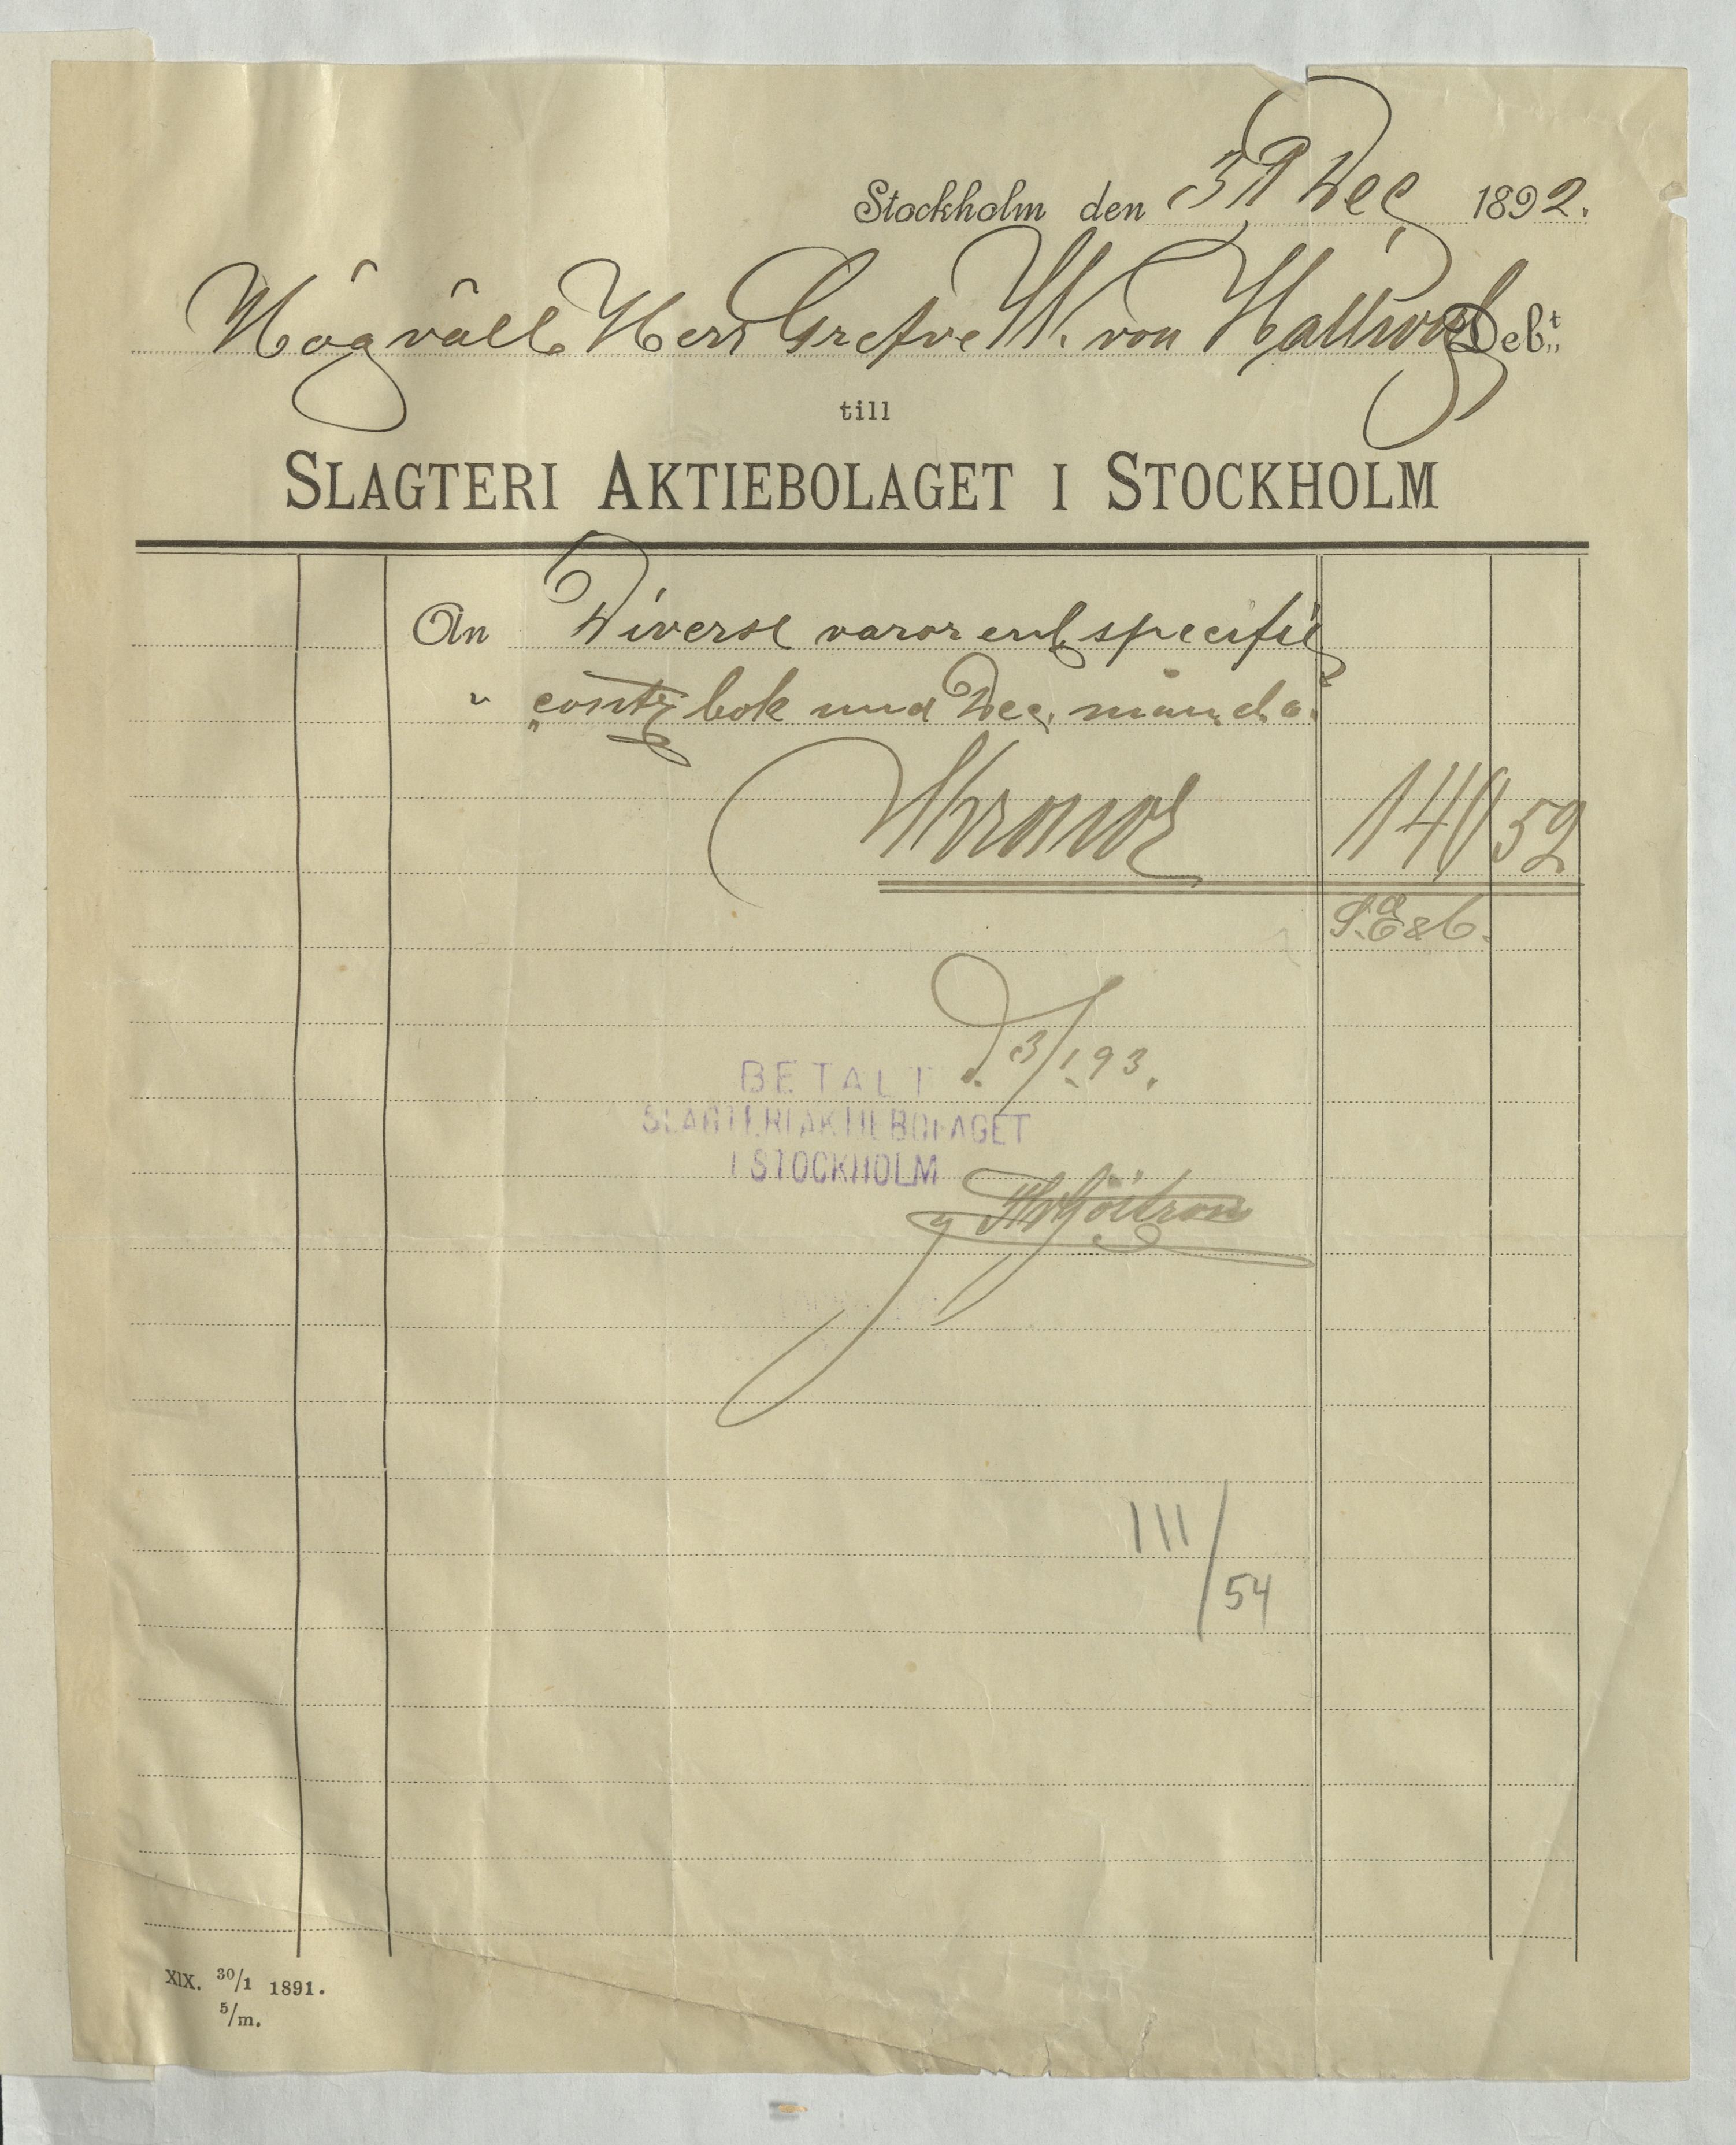 Stockholm den 31 Dec 1892.
Högväll. Herr Grefve W. von Hallwyl Deb:t
till
SLAGTERI AKTIEBOLAGET I STOCKHOLM
An Diverse varor enl specific
" contr bok und Dec. månad.
Kronor 140 52
S. E & O.
d. 3/1 93.
BETALT
SLAGTERIAKTIEBOLAGET
I STOCKHOLM
111/54
XIX. 30/1 1891.
5/m.